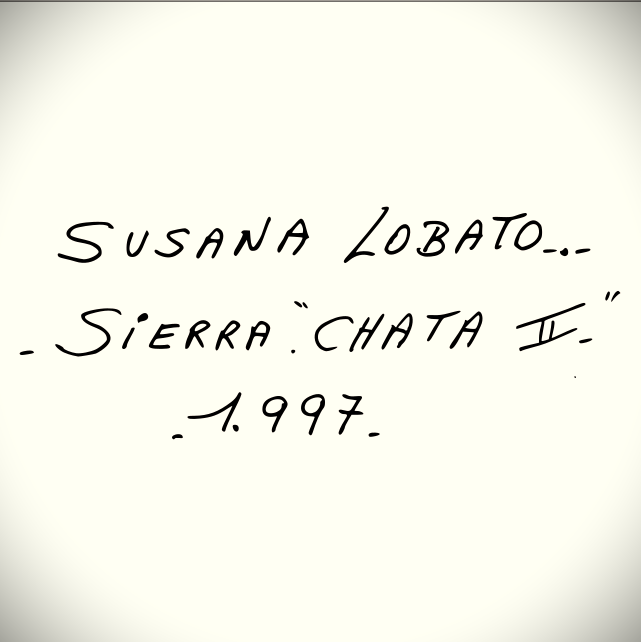 SUSANA LOBATO-.-
- SiERRA. "CHATA II-"
- 1.997.-